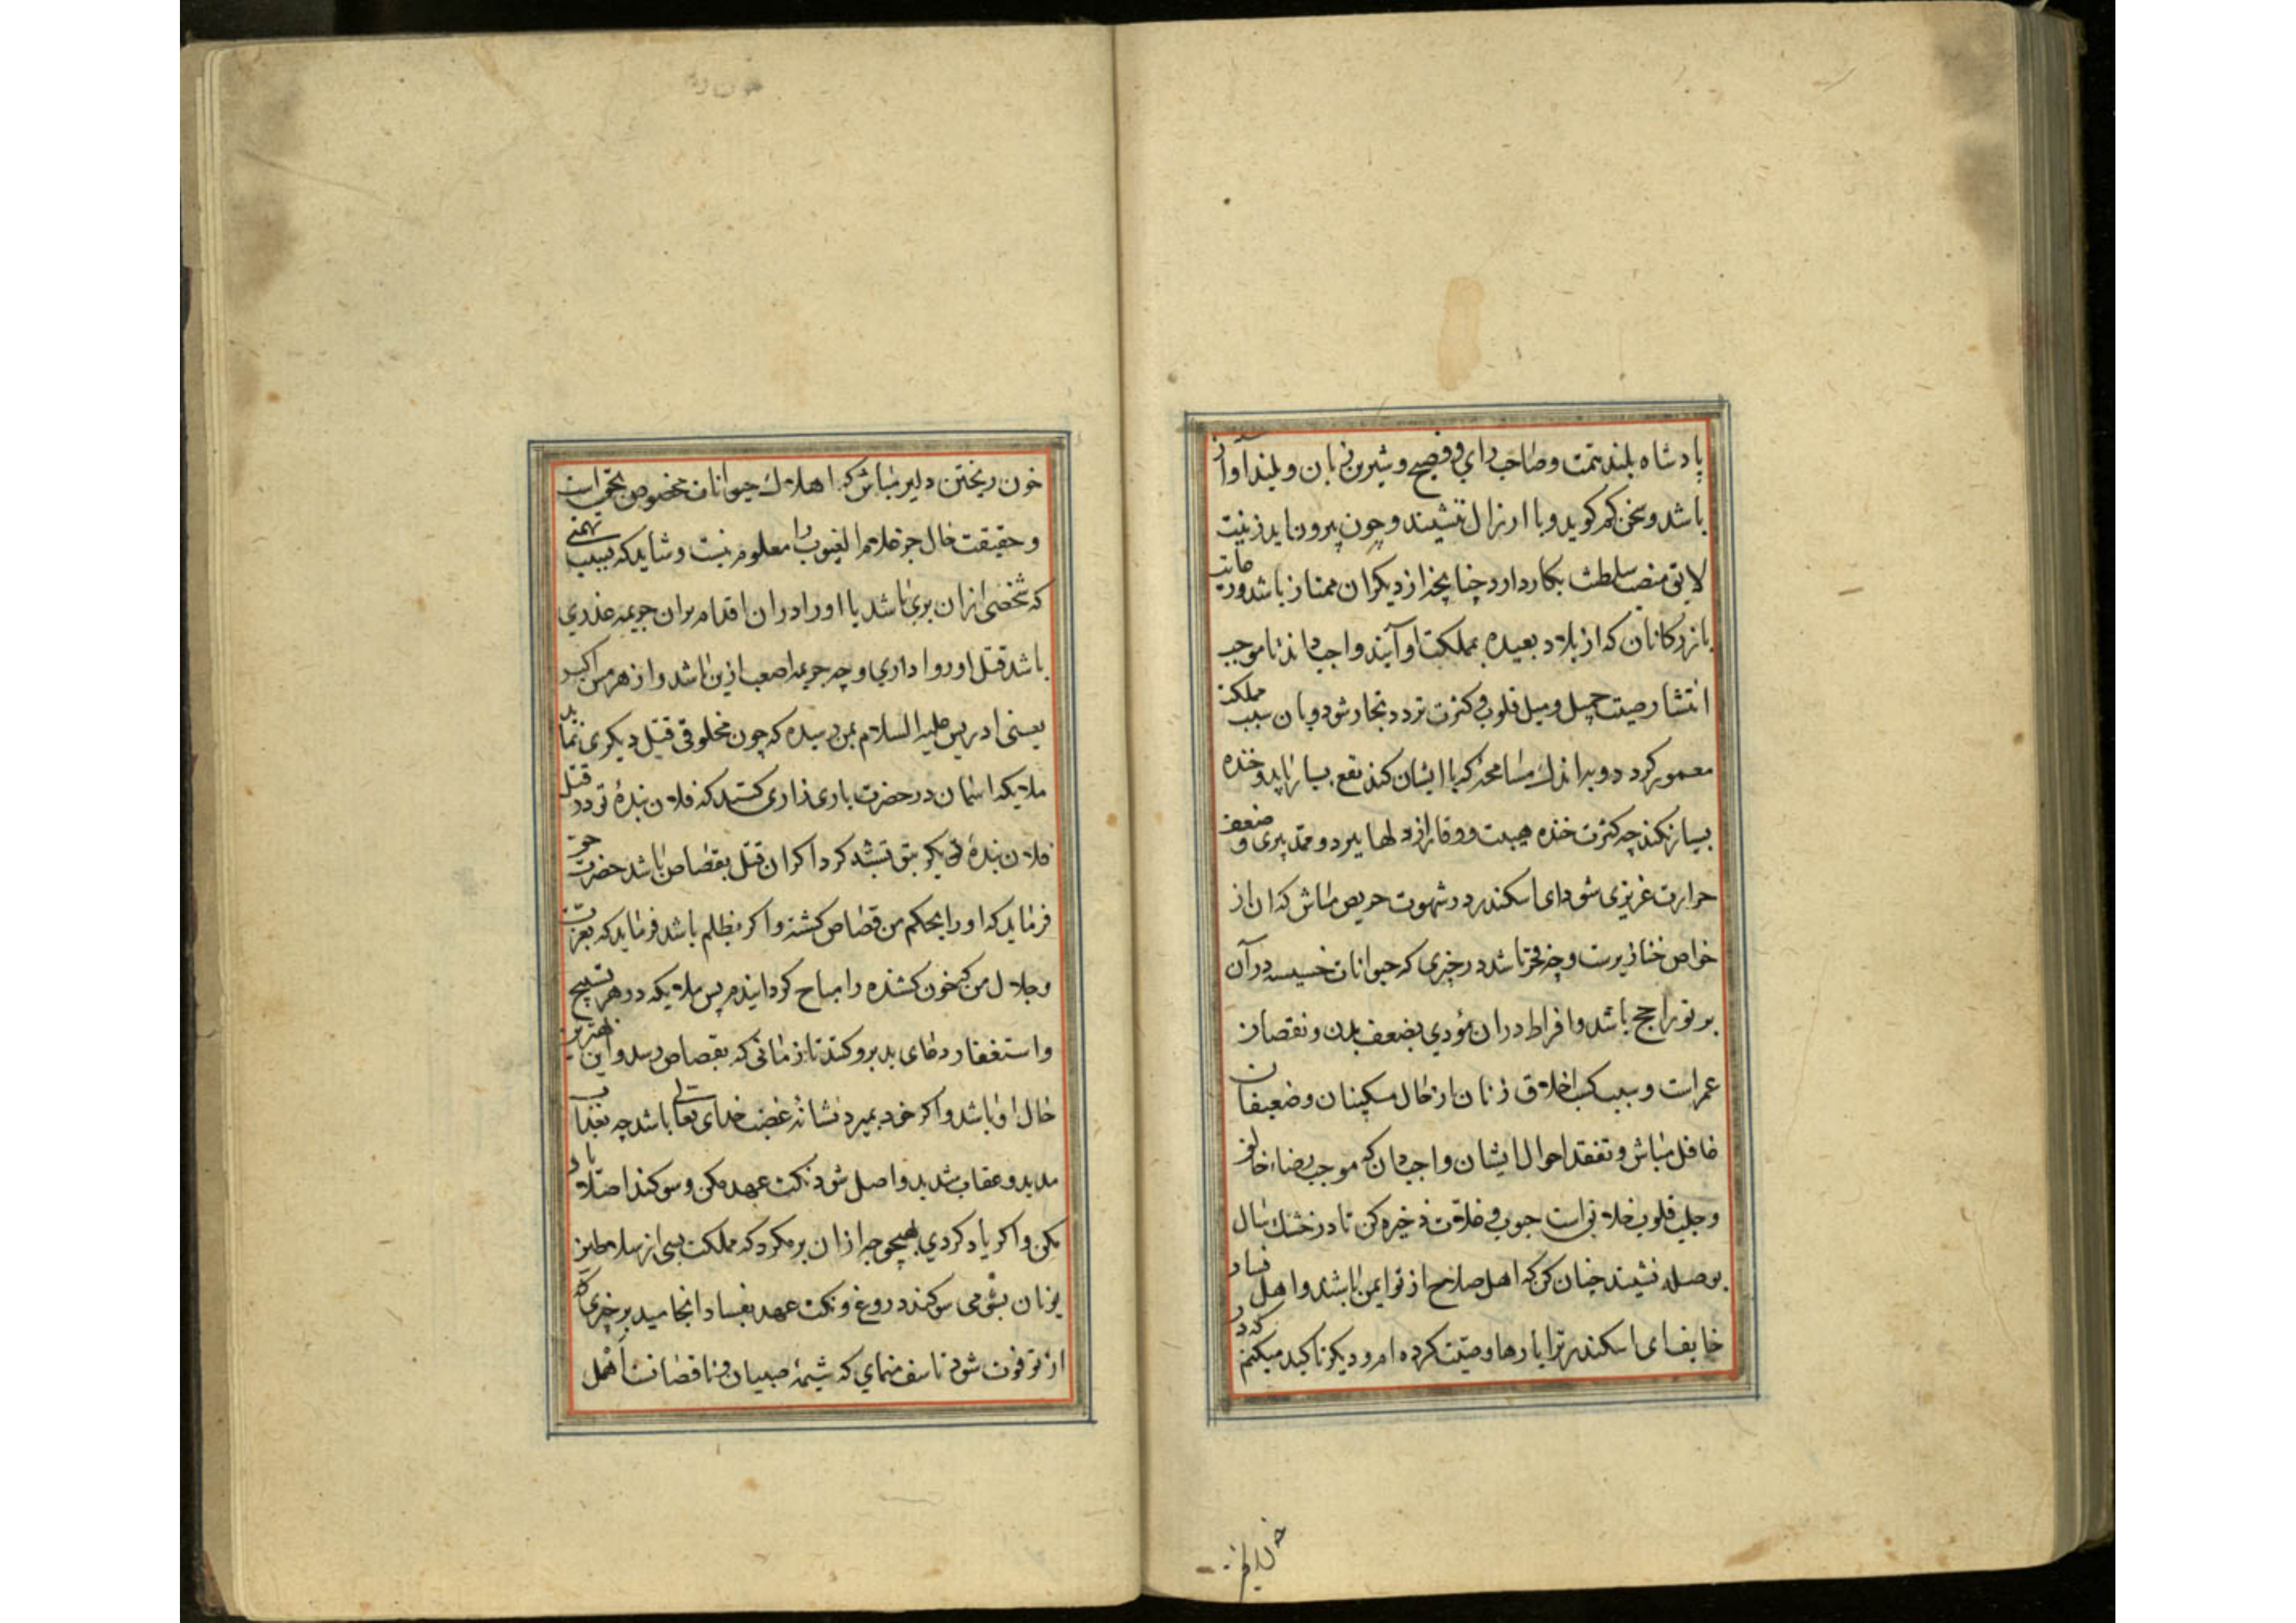 پادشاه بلند همت و صاحب رای و فصیح و شیرین زبان و بلند آواز
باشد و سخن کم گوید و با ارزال ننشیند و چون بیرون اید زینت
لایق منصب سلطنت بکار دارد چنانچه از دیگران ممتاز باشد و رعایت
بازرکانان که از بلاد بعیده بمملکت او آیند واجب داند تا موجب
انتشار صیت جمیل و میل قلوب و کثرت تردد تجار شود و بان سبب مملکت
معمور کردد و به اندک مسامحه که با ایشان کند نفع بسیار یابد و خنده
بسیار نکند چه کثرت خنده هیبت و وقار از دلها ببرد و ممد پیری و ضعف
حرارت غریزی شود ای اسکندر در شهوت حریص مباش که ان از
خواص خنازیرست و چه فخر باشد در چیزی که حیوانات خسیسه در آن
بر تو راجح باشد و افراط در ان مؤدي بضعف بدن و نقصان
عمر است و سبب کسب اخلاق زنان از حال مسکینان و ضعیفان
غافل مباش و تفقد احوال ایشان واجب دان که موجب رضاء خالق
و جلب قلوب خلایق است حبوب و غلات ذخیره کن تا در خشک سال
بوصله نشیند چنان کن که اهل صلاح از تو ایمن باشد و اهل فساد
خایف ای اسکندر ترا بارها وصیت کرده ام و دیگر تاکید میکنم که در
خون ریختن
خون ریختن دلیر مباش که اهلاک حیوانات مخصوص بحق است
و حقیقت حال جز علام الغیوب را معلوم نیست و شاید که بسبب تهمتی
که شخصی از ان بری باشد یا او را در ان اقدام بران جریمه عذری
باشد قتل او روا داري و چه جریمه اصعب ازین باشد و از هرمس اکبر
یعنی ادریس علیه السلام بمن رسیده که چون مخلوقی قتل دیگری نماید
ملایکه اسمان در حضرت باری زاری کنند که فلان بندهٔ تو در قتل
فلان بندهٔ دیگر بتو تشبه کرد اگر ان قتل بقصاص باشد حضرت حق
فرماید که او را بحکم من قصاص کشته و اکر بظلم باشد فرماید که بعزت
و جلال من که خون کشنده را مباح کردانیدم پس ملایکه در هر تسبیح
و استغفار دعای بد برو کنند تا زمانی که بقصاص رسد و این بهترین
حال او باشد و اکر خود بمیرد نشانهٔ غضب خدای تعالی باشد چه بعذاب
مدید و عقاب شدید واصل شود نکث عهد مکن و سوکند اصلا یاد
مکن و اکر یاد کردي بهیچ وجه از ان بر مکرد که مملکت بسی از سلاطین
یونان بشومی سوکند دروغ و نکث عهد بفساد انجامید بر چیزی که
از تو فوت شود تاسف منمای که شیمهٔ صبیان و ناقصانست اهمل